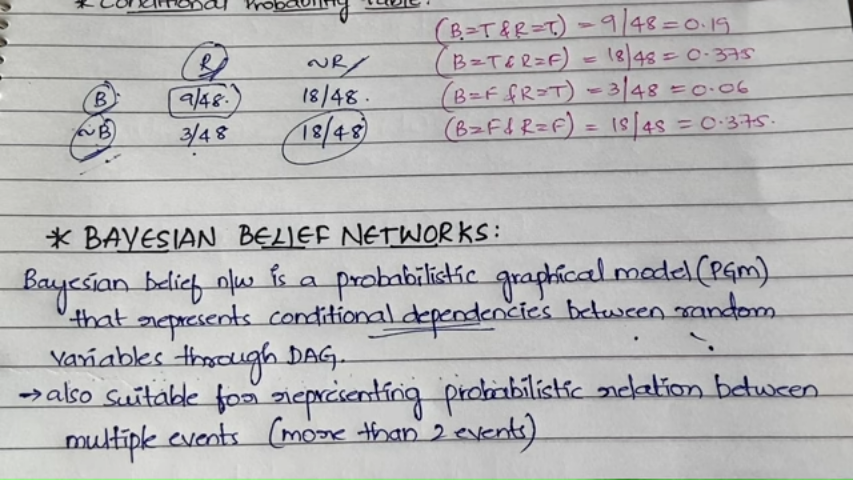 * Conditional Probability Table:
(B=T & R=T) = 9/48 = 0.19
R ~R
(B=T & R=F) = 18/48 = 0.375
B 9/48. 18/48. (B=F & R=T) = 3/48 = 0.06
~B 3/48 18/48 (B=F & R=F) = 18/48 = 0.375.
* BAYESIAN BELIEF NETWORKS:
Bayesian belief n/w is a probabilistic graphical model (PGM)
that represents conditional dependencies between random
variables through DAG.
→ also suitable for representing probabilistic relation between
multiple events (more than 2 events)